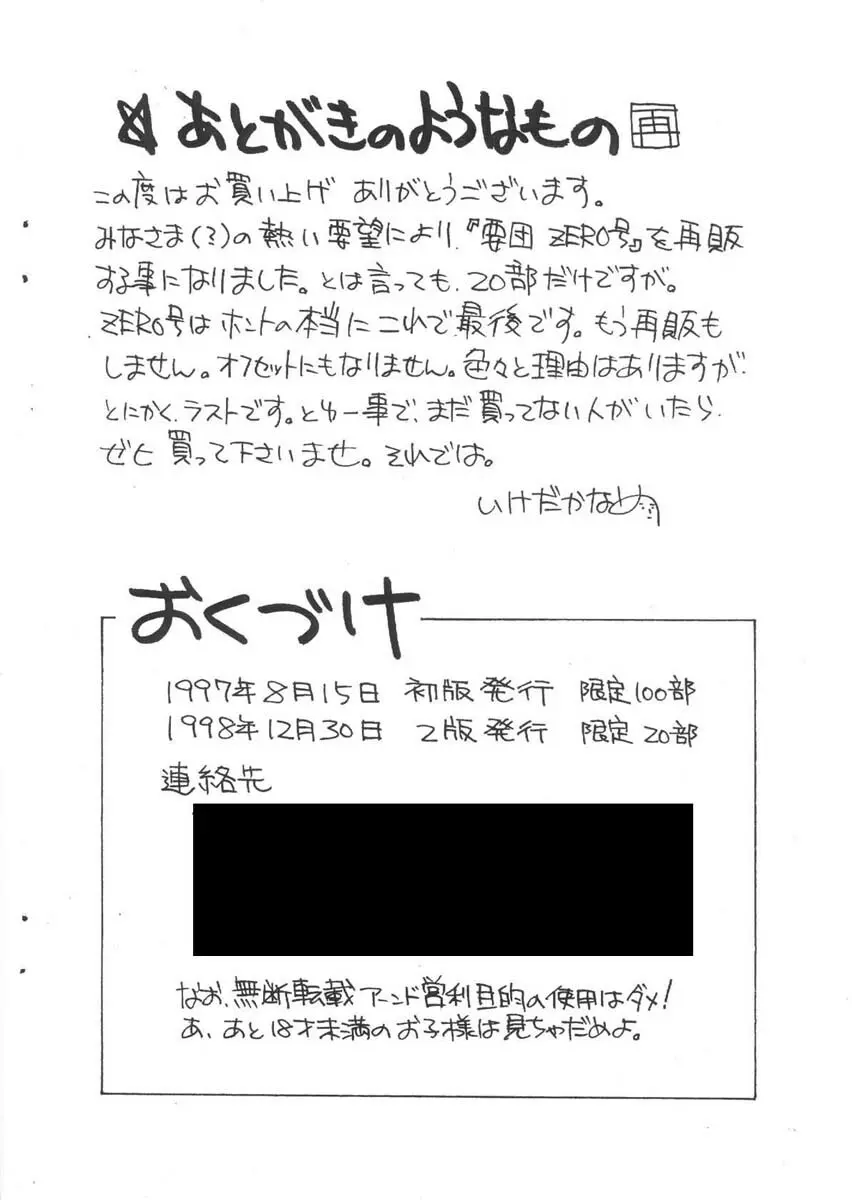 ☆あとがきのようなもの 再
この度はお買い上げ ありがとうございます。
みなさま(?)の熱い要望により、『要団 ZERO号』を再販
する事になりました。とは言っても、20部だけですが。
ZERO号はホントの本当にこれで最後です。もう再販も
しません。オフセットにもなりません。色々と理由はありますが、
とにかく、ラストです。とゆー事で、まだ買ってない人がいたら、
ぜヒ 買って下さいませ。それでは。
いけだかなめ
おくづけ
1997年8月15日 初版発行 限定100部
1998年12月30日 2版発行 限定20部
連絡先
なお、無断転載アーンド営利目的の使用はダメ!
あ、あと18才未満のお子様は見ちゃだめよ。